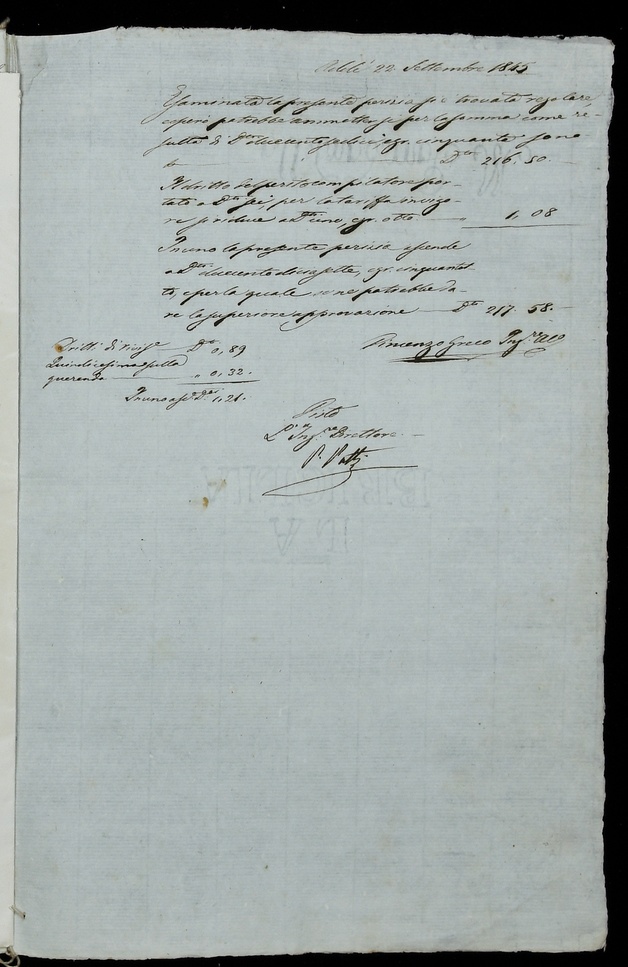 22 Settembre 1845
Esaminata la presente perizia si è trovata regolare,
e però potrebbe ammettersi per la somma come re-
sulta di Dti duecento sedici, e gr. cinquanta sono
Dti 216. 50.
Il dritto del perito compilatore por-
tato a Dti sei per tariffa in vigo-
re si riduce a Dti uno, e gr. otto 1, 08
In uno la presente perizia ascende
a Dti duecento diciasette, e gr. cinquantot-
to, e per la quale se ne potrebbe da-
re la superiore approvazione Dti 217. 58.
Vincenzo Greco Ingre
Dritti di revise Dti 0, 89
Quindicesima sulla
querenda " 0, 32.
In uno Dti 1, 21.
Visto
L'Ingre Direttore
P. Patti